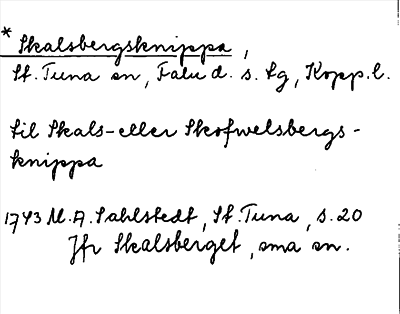 * Skalsbergsknippa,
St. Tuna sn, Falu d. s. lg, Kopp. l.
till Skals- eller Skofwelsbergs-
knippa
1743 M. A. Sahlstedt, St. Tuna, s. 20
Jfr Skalsberget, sma sn.